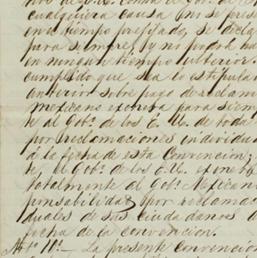 cualquiera causa no se pres
en el tiempo prefijado, se decla
para siempre, y no podrá ha
en ningun tiempo ulterior.
cumplido que sea lo estipulad
anterior sobre pago de reclam
Mexicano exonera para siem
te al Gobº de los E. U. de toda
por reclamaciones individua
á la fecha de esta Convencion;
te, el Gobº de los E. U. exonera
totalmente al Gobº Mexican
ponsabilidad por reclama
duales de sus ciudadanos
fecha de la convencion.
Artº 11º — La presente convencion